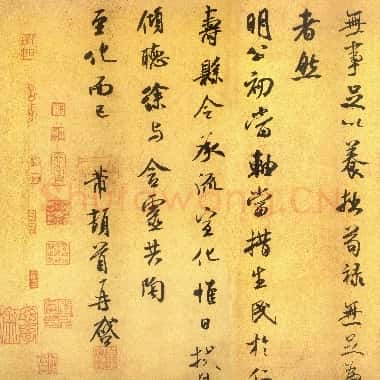 無事足以養拙苟祿無足為
者然
明公初當軸當措生民於仁
壽縣令承流宣化惟日拭
傾聽徐與含靈共陶
至化而已 芾頓首再啓